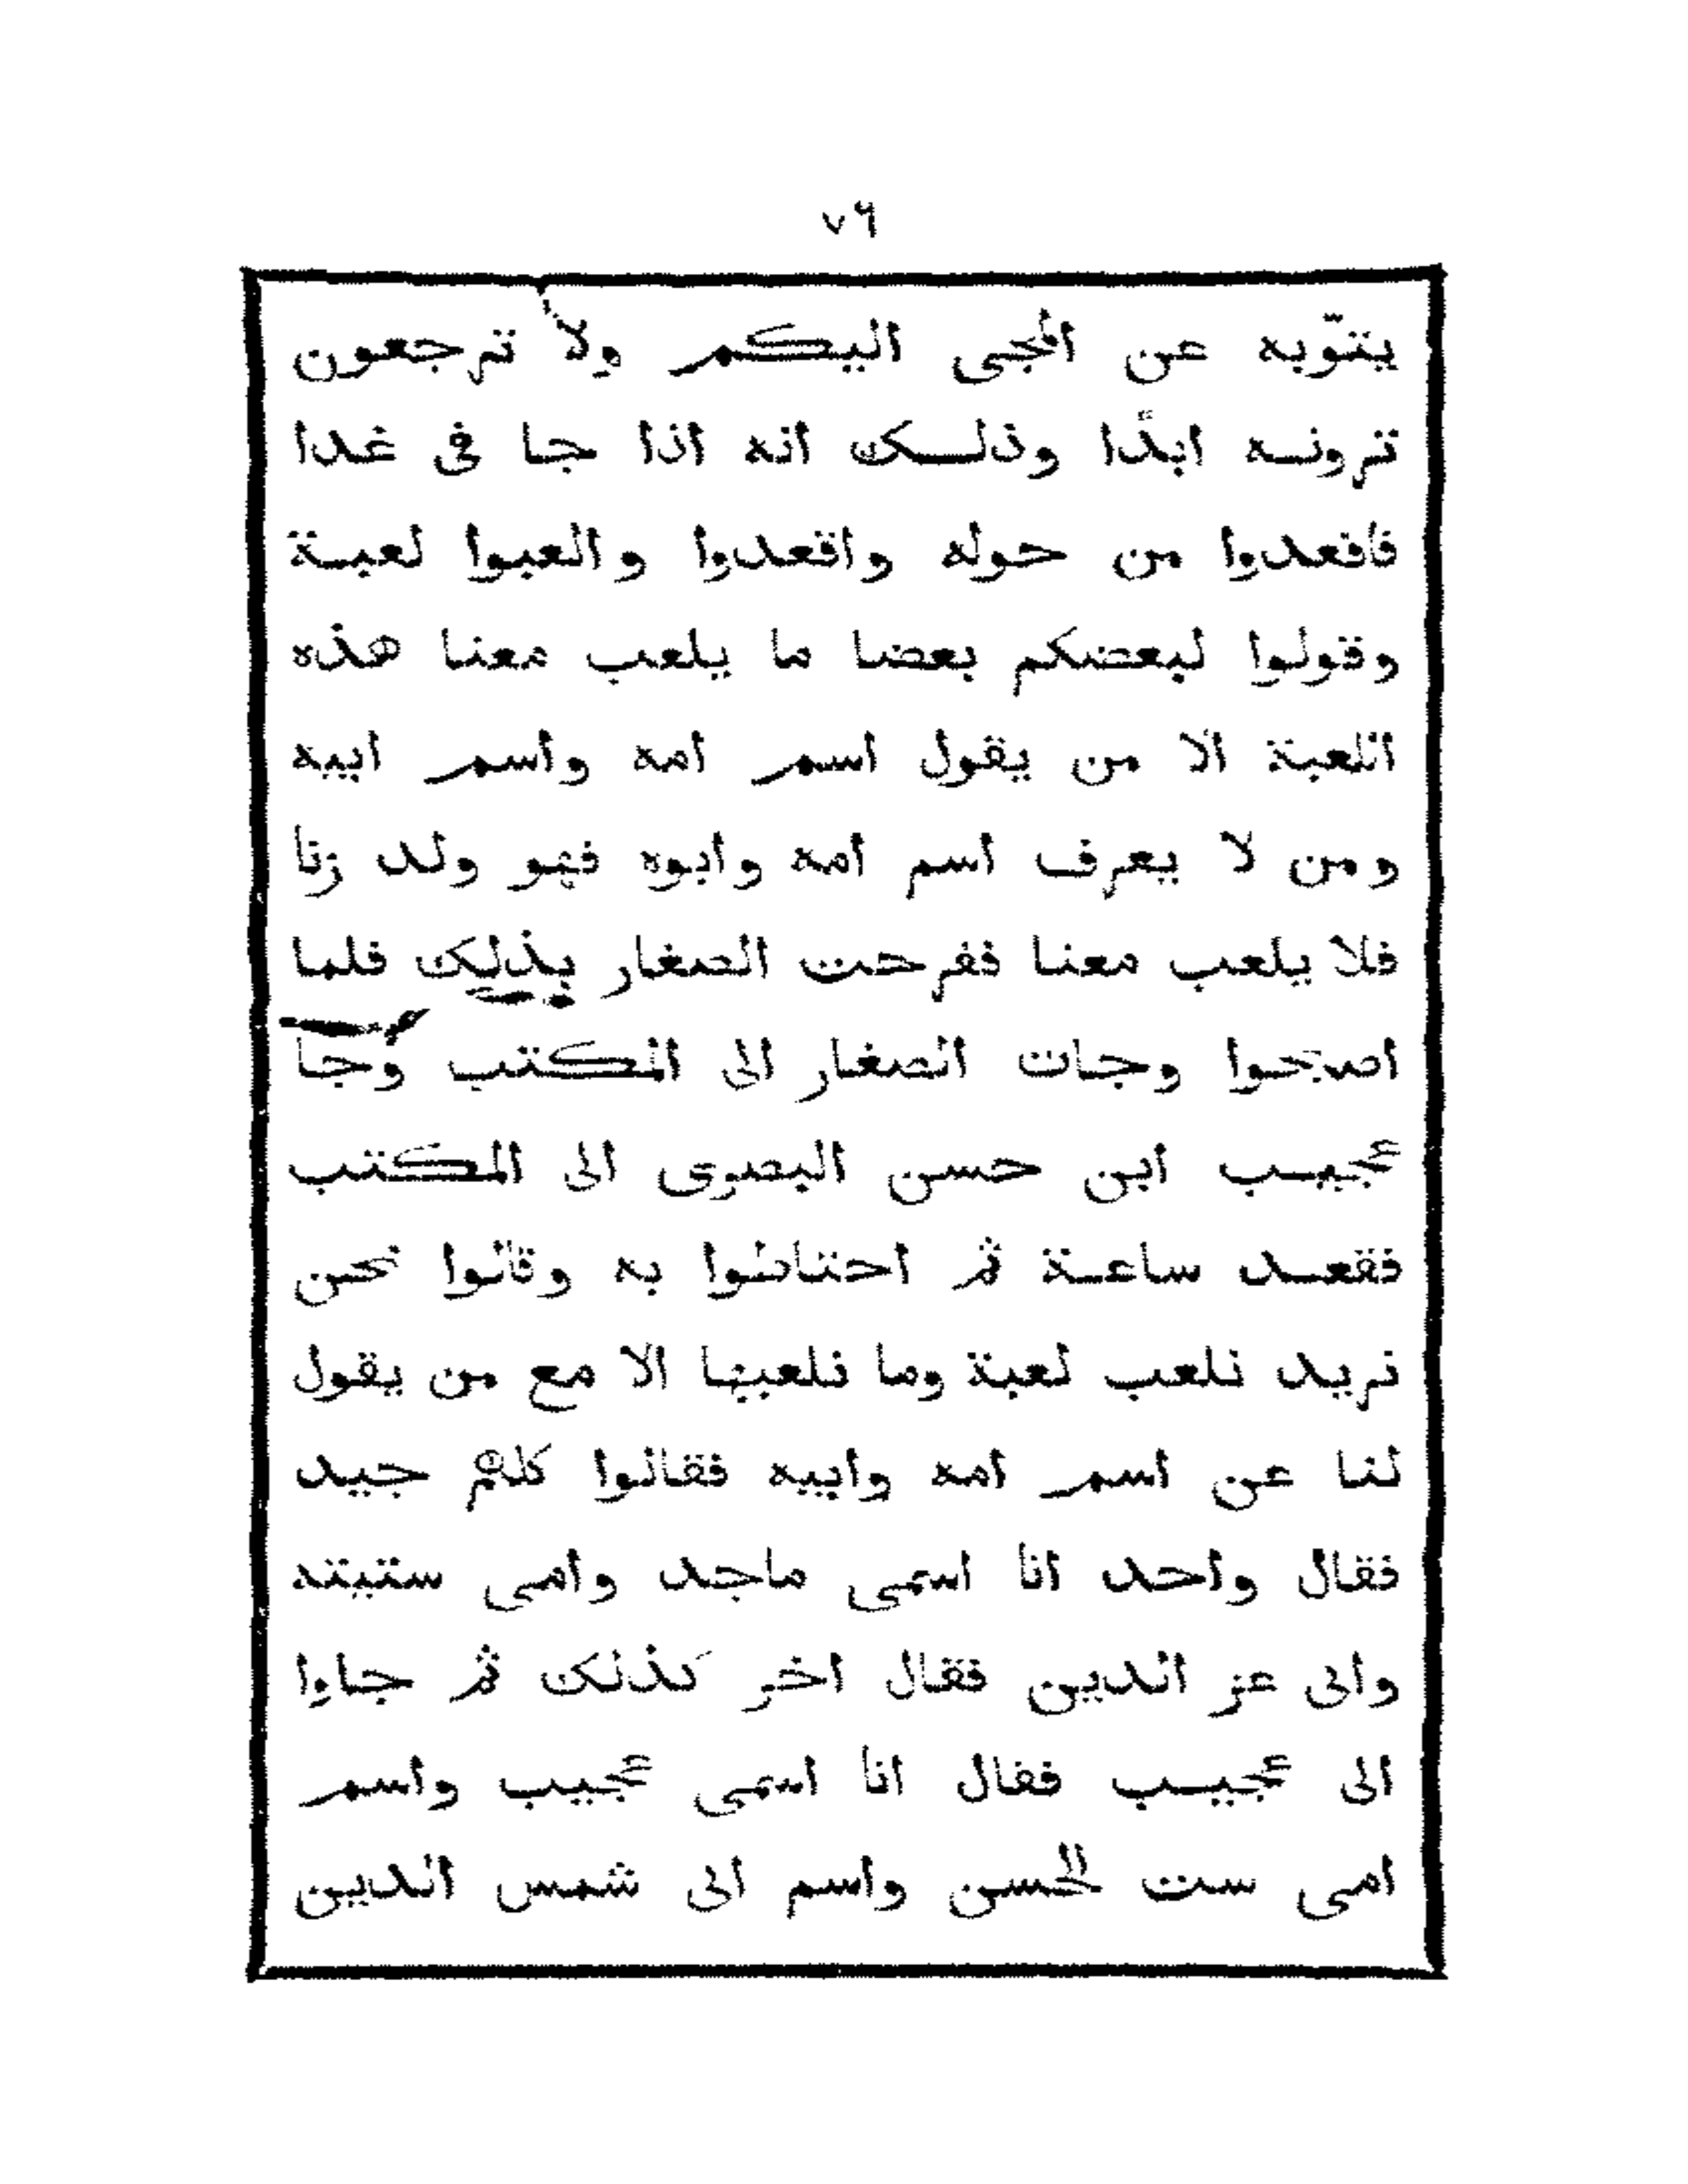 ٧٦
يتوّبه عن المجى اليكم ولا ترجعون
ترونه ابدًا وذلك انه اذا جا فى غدا
فاقعدوا من حوله واقعدوا والعبوا لعبة
وقولوا لبعضكم بعضا ما يلعب معنا هذه
اللعبة الا من يقول اسم امه واسم ابيه
ومن لا يعرف اسم امه وابوه فهو ولد زنا
فلا يلعب معنا ففرحت الصغار بذلك فلما
اصبحوا وجات الصغار الى المكتب وجا
عجيب ابن حسن البصرى الى المكتب
فقعد ساعة ثم احتاطوا به وقالوا نحن
نريد نلعب لعبة وما نلعبها الا مع من يقول
لنا عن اسم امه وابيه فقالوا كلهم جيد
فقال واحد انا اسمى ماجد وامى ستيته
وابى عز الدين فقال اخر كذلك ثم جاوا
الى عجيب فقال انا اسمى عجيب واسم
امى ست الحسن واسم ابى شمس الدين